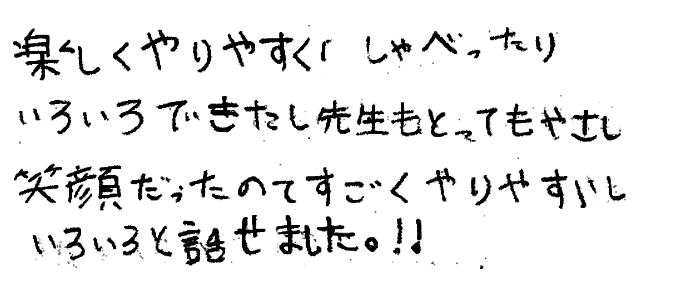 楽しくやりやすく、しゃべったり
いろいろできたし先生もとってもやさし
笑顔だったのですごくやりやすいし
いろいろと話せました。!!